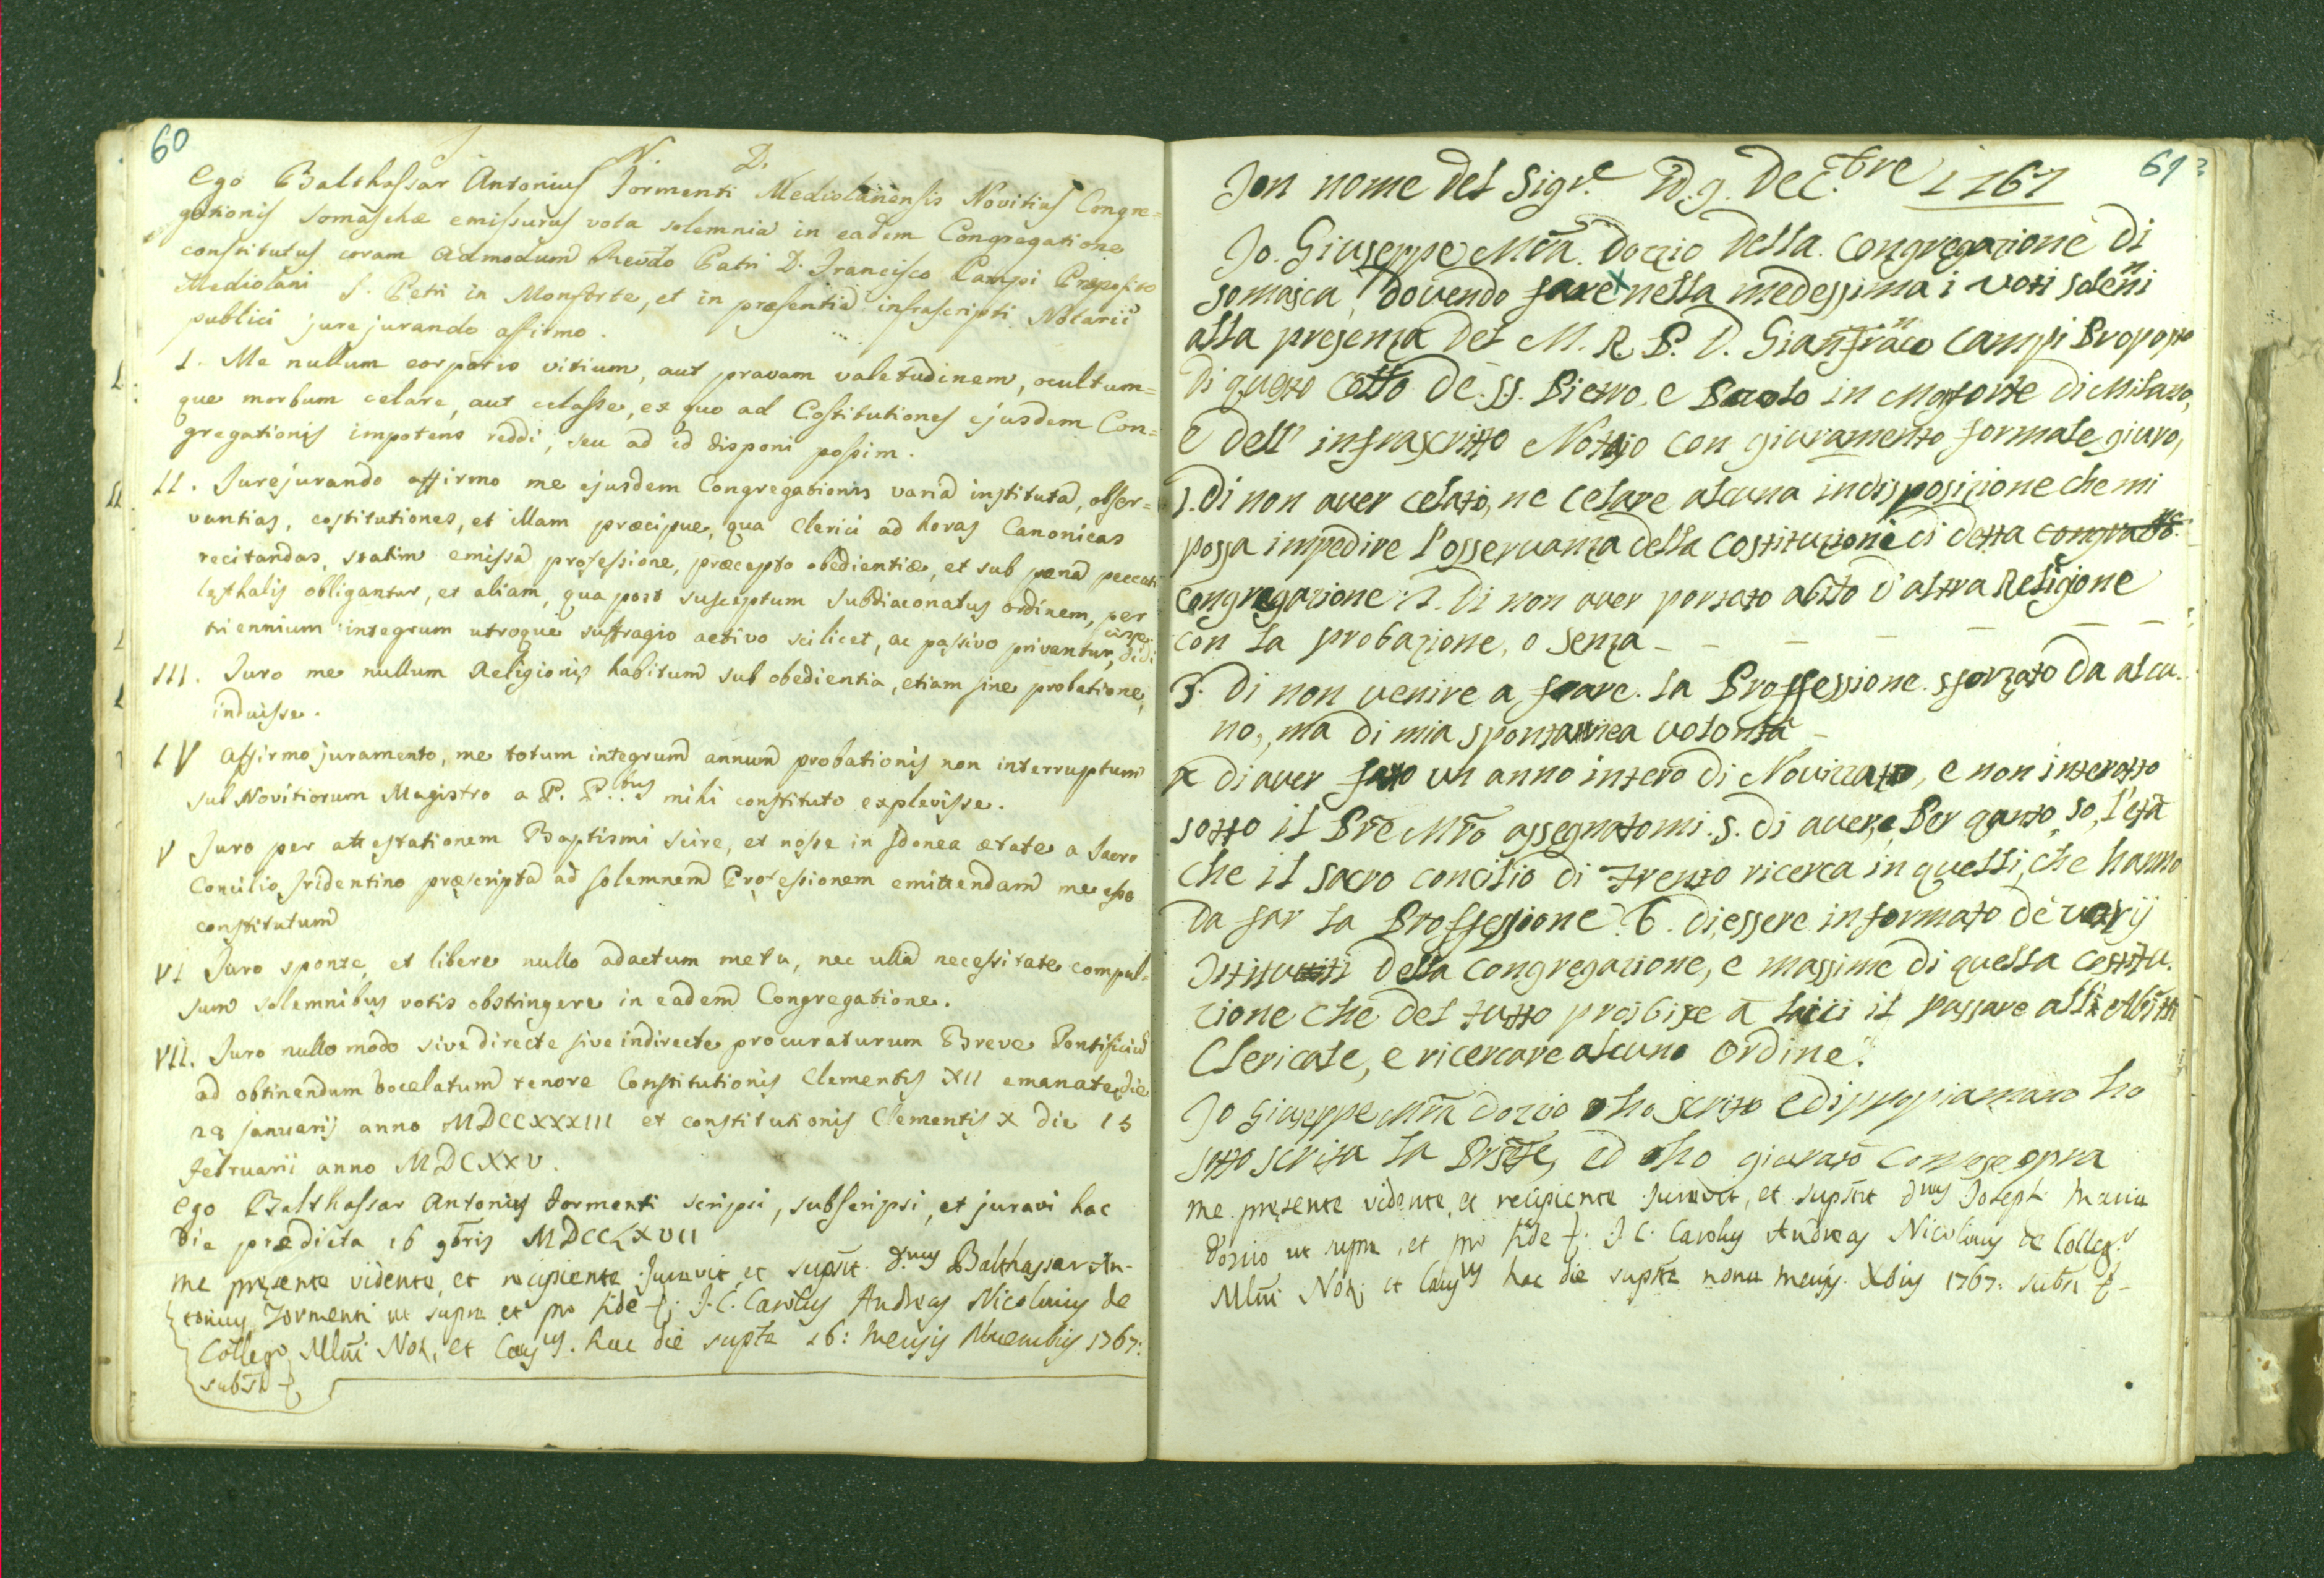 60
N. D.
Ego Balthassar Antonius Tormenti Mediolanensis Novitius Congre=
gationis Somaschæ emissurus vota solemnia in eadem Congregatione
constitutus coram Admodum Revdo Patri D. Francisco Campi Præposito
Mediolani S. Petri in Monforte, et in præsentia infrascripti Notarii
publici jurejurando affirmo.
I. Me nullum corporis vitium, aut pravam valetudinem, ocultum=
que morbum celare, aut celasse, ex quo ad Costitutiones ejusdem Con=
gregationis impotens reddi, seu ad id disponi possim.
II. Jurejurando affirmo me ejusdem Congregationis varia instituta, obser=
vantias, costitutiones, et illam præcipue, qua Clerici ad horas Canonicas
recitandas, statim emissa professione, præcepto obedientiæ, et sub pœna peccati
læthalis obligantur, et aliam, qua post susceptum subdiaconatus ordinem, per
triennium integrum utroque suffragio activo scilicet, ac passivo privantur,
III. Juro me nullum Religionis habitum sub obedientia, etiam sine probatione,
induisse.
IV Affirmo juramento, me totum integrum annum probationis non interruptum
sub Novitiorum Magistro a P. P.bus mihi constituto explevisse.
V Juro per attestationem Baptismi scire, et nosse in Idonea ætate a Sacro
Concilio Tridentino præscripta ad solemnem Professionem emittendam me esse
constitutum
VI Juro sponte, et libere nullo adactum metu, nec ulla necessitate compul=
sum solemnibus votis obstringere in eadem Congregatione.
VII. Juro nullo modo sive directe sive indirecte procuraturum Breve Pontificiu
ad obtinendum bocelatum tenore Constitutionis Clementis XII emanate die
28 januarij anno MDCCXXXIII et constitutionis Clementis X die 15
februarii anno MDCXXV.
Ego Balthassar Antonius Tormenti scripsi, subscripsi, et juravi hac
die prædicta 16 9bris MDCCLXVII
me presente vidente, et recipiente Juravit et supsit D.nus Balthassar An-
tonius Tormenti ut supra et pro fide J. C. Carolus Andreas Nicolinus de
Colleg.o Mlni Not. et Caus.us hac die supta 16: mensis Nouembris 1767:
61
Jon nome del Sigr.e Ad. 9. Dec.bre 1767
Jo. Giuseppe Mra. Dozzio della Congregazione di
somasca, dovendo fare nella medessima i voti soleni
alla presenza del M. R. P. D. Gianfranco Campi Proposto
di questo Collo de SS. Pietro, e Paolo in Monforte di Milano,
e dell' infrascritto Notajo con giuramento formale giuro,
1. Di non aver celato, ne celare alcuna indisposizione che mi
possa impedire l'osservanza della Costituzione di detta
Congregazione: 2. Di non aver portato abito d'altra Religione
con la probazione, o senza
3. Di non venire a fare la Proffessione sforzato da alcu.
no, ma di mia spontannea volontà
4 di aver fatto un anno intero di Noviziato, e non interotto
sotto il Pre Mro assegnatomi. 5. Di avere, e Per qanto so, l'età
che il sacro concilio di Trento ricerca in quelli, che hanno
da far la Proffessione. 6. di essere informato de varij
Istituti della Congregazione, e massime di quella costitu.
zione che del tutto proibisce a laici il passare all' Abito
Clericale, e ricercare alcuno Ordine.
Jo Giuseppe Mra Dozzio ho scritto e di propria mano ho
sotto scritta la Prste, ed ho giurato come sopra
me presente vidente, et recipiente Juravit, et supsit dnus Joseph Maria
Dozzio ut supra, et pro fide J. C. Carolus Andreas Nicolinus de Colleg.o
Mlni Not. et Caus.us hac die supta nona mensis Xbris 1767: